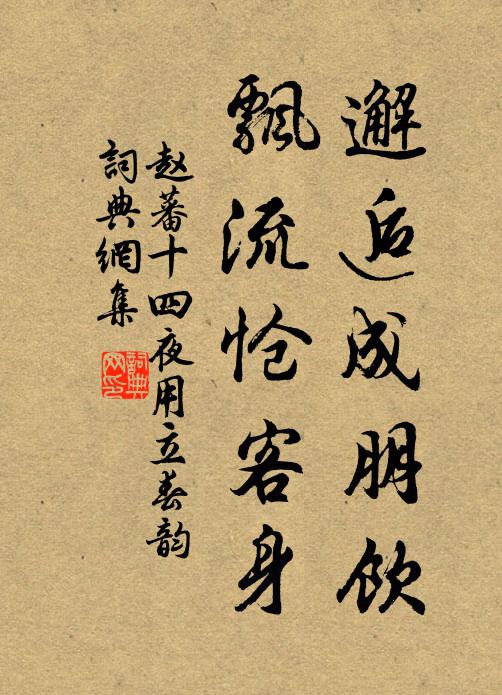 邂逅成朋飲
飄流怆客身
赵蕃十四夜用立春韵
詞典網集
詞典网印